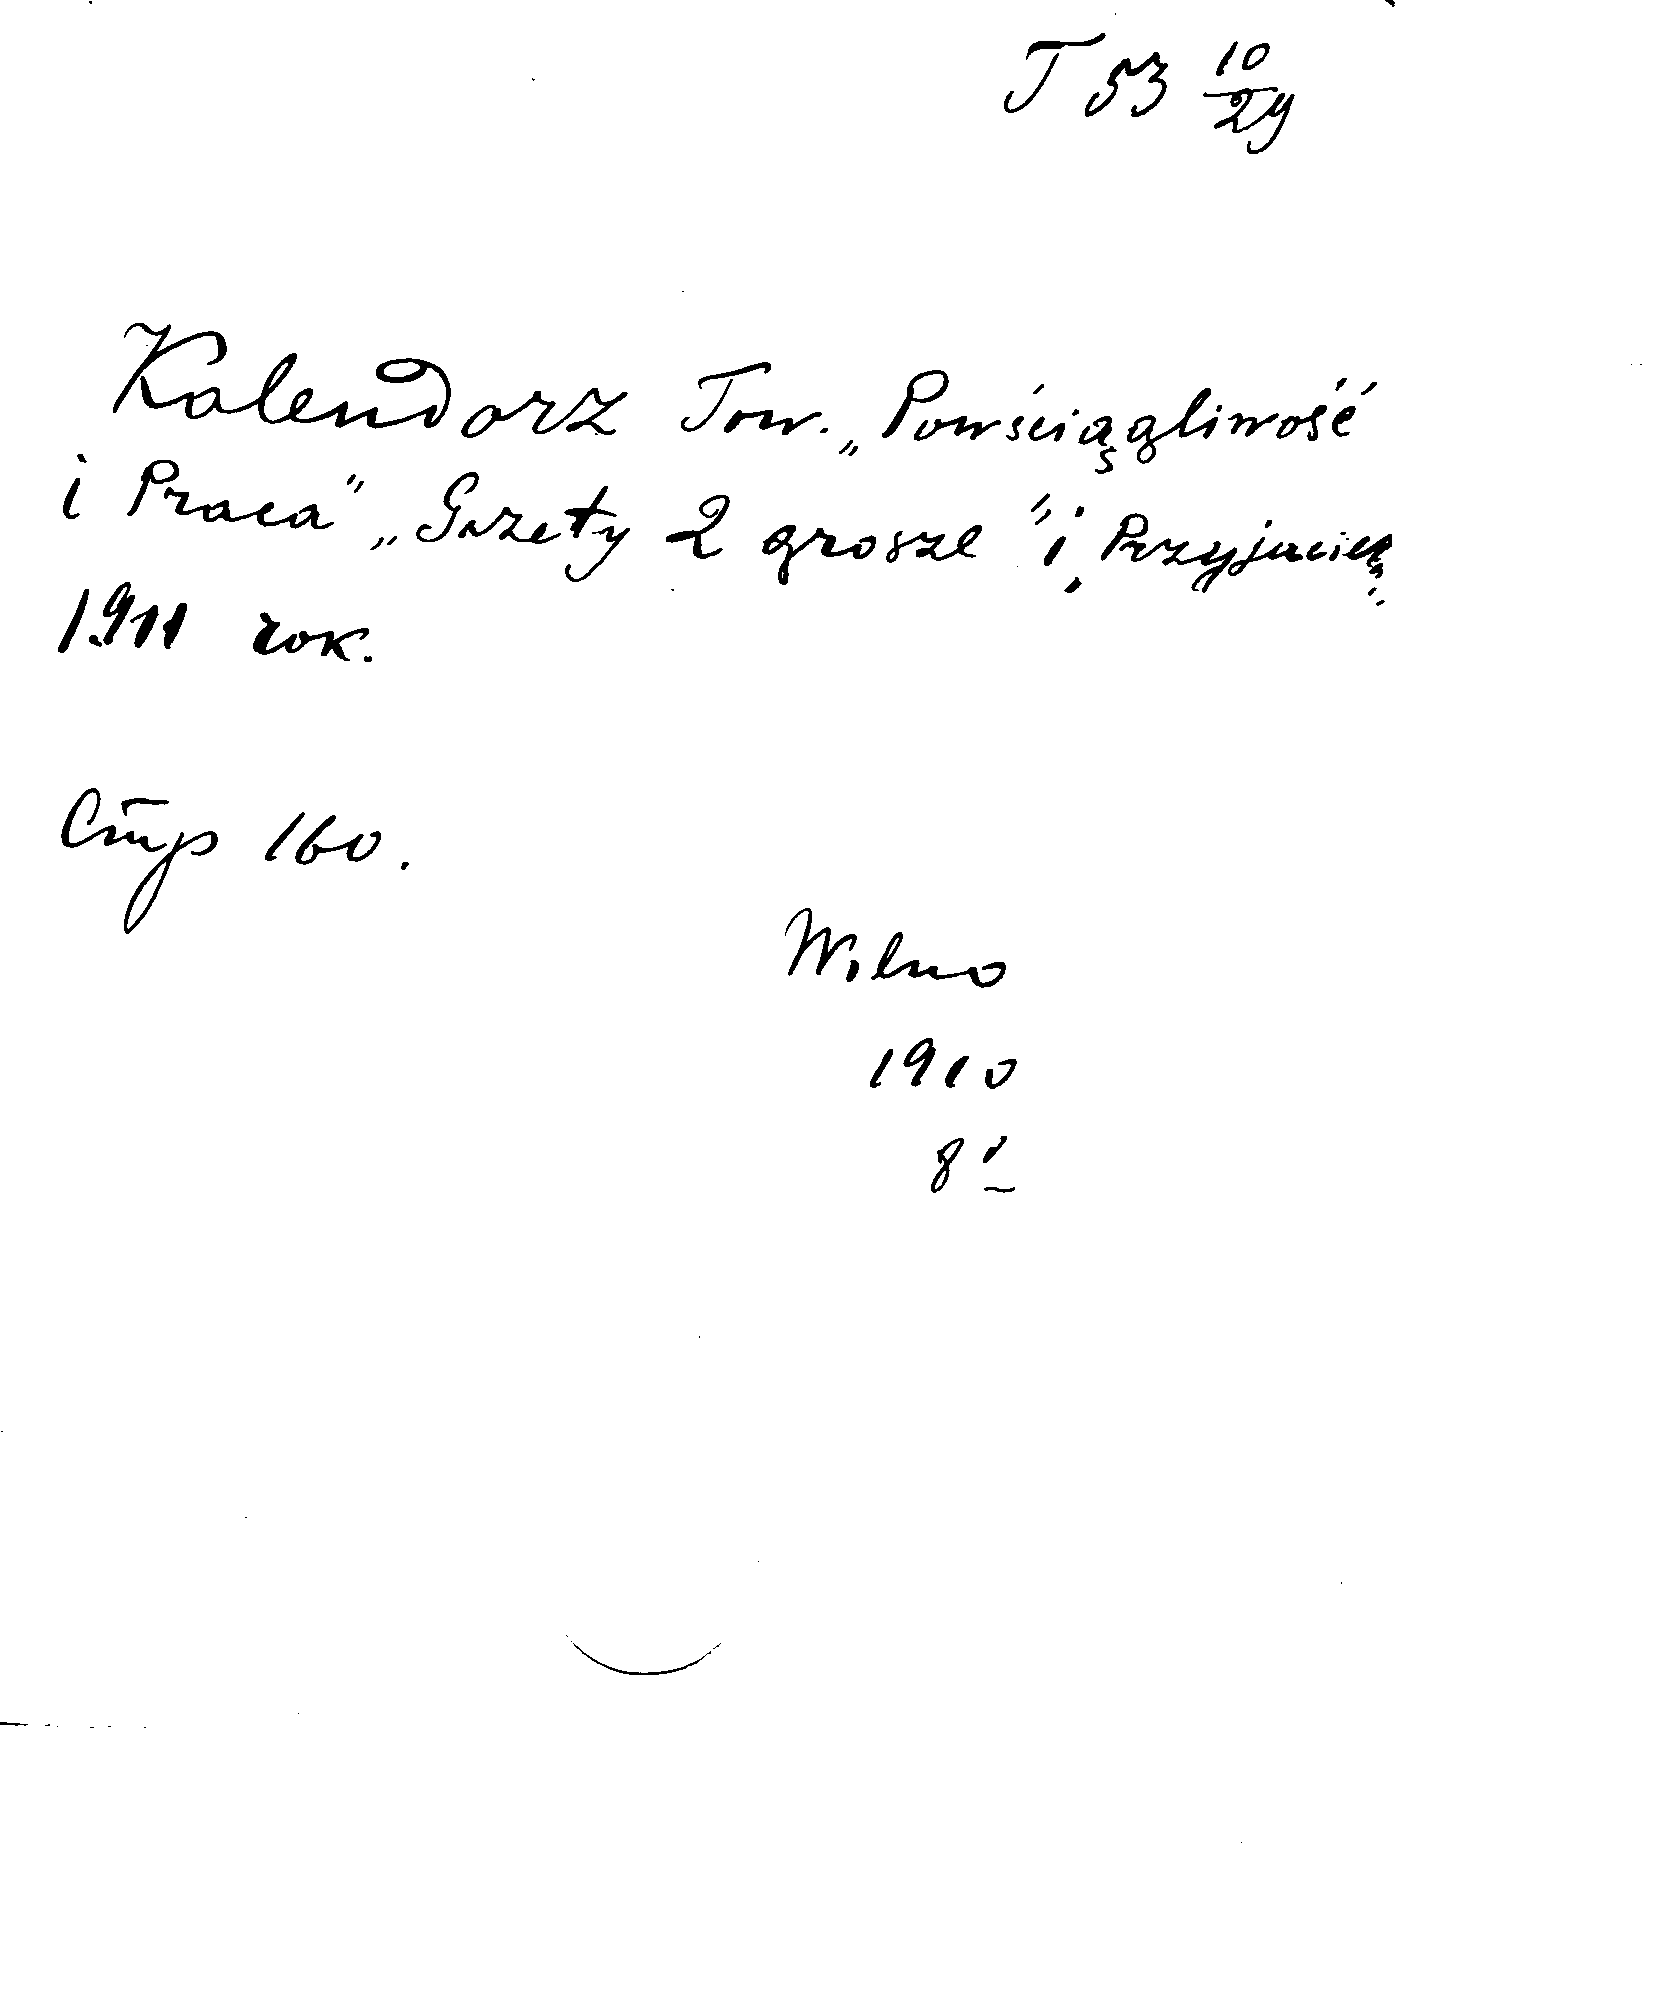 T 53 10/29
Kalendarz Tow. „Powściągliwość
i Praca" „Gazety 2 grosze" i „Przyjaciela"
1911 rok.
Стр 160.
Wilno
1910
8°